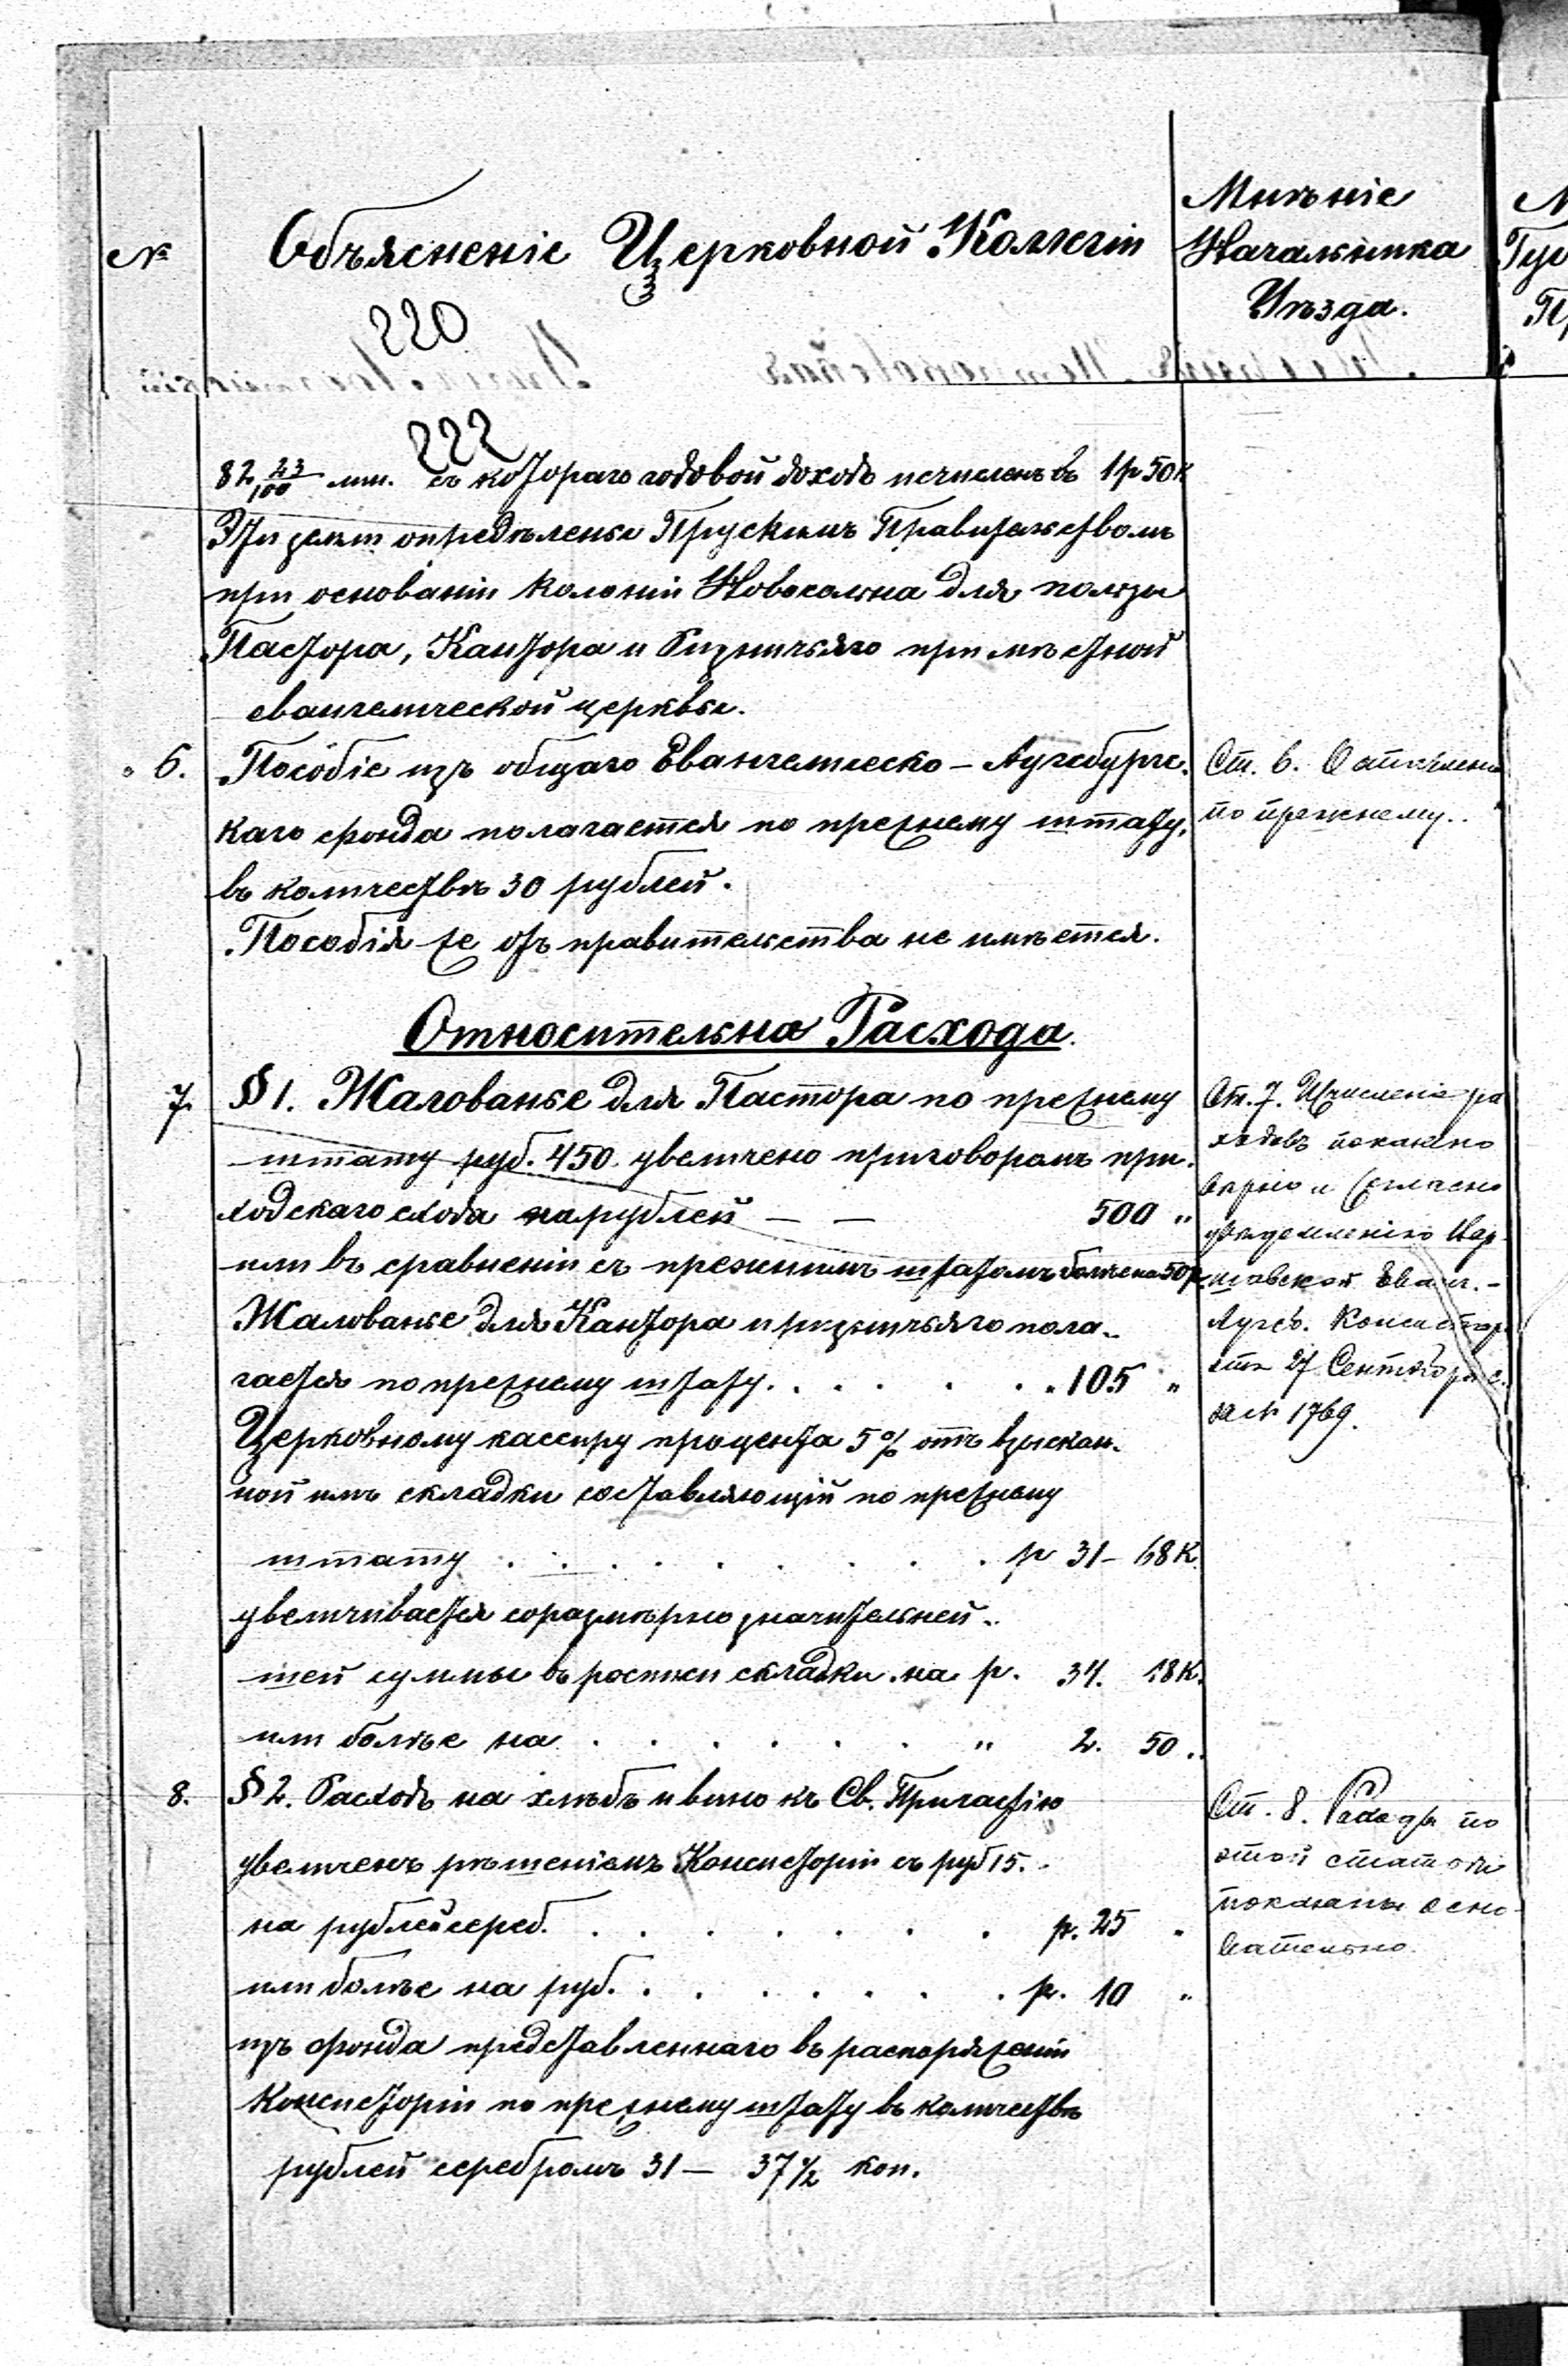 №
Объясненіе Церковной Коллегіи
Мнѣніе
Начальника
Уѣзда.
220
222
82 23/100 мм. съ котораго годовой доходъ исчисленъ въ 1р 50к
Эти земли опредѣлены Прускимъ Правительствомъ
при основаніи Колоніи Новосольна для пользы
Пастора, Кантора и Ризничьяго при мѣстной
евангелической церквы.
6. Пособіе изъ общаго Евангелическо-Аугсбургс.
каго фонда полагается по прежнему штату,
въ количествѣ 30 рублей.
Пособія же отъ правительства не имѣется.
Относительна Расхода.
7. § 1. Жалованье для Пастора по прежнему
штату руб. 450 увеличено приговоромъ при.
ходскаго схода на рублей — — 500 "
или въ сравненіи съ прежнимъ штатомъ болѣе на 50р
Жалованье для Кантора и ризничьяго пола-
гается по прежнему штату . . . . . . 105 "
Церковному кассиру процента 5% отъ взыскан-
ной имъ складки составляющій по прежнему
штату . . . . . . . . р 31 - 68 к.
увеличивается соразмѣрно значительней-
шей суммы въ росписи складки на р. 34. 18 к.
или болѣе на . . . . . . " 2. 50 "
8. § 2. Расходъ на хлѣбъ и вино къ Св. Причастію
увеличенъ рѣшеніемъ Консисторіи съ руб 15.
на рублей сереб. . . . . . . . р. 25 "
или болѣе на руб. . . . . . . . р. 10 "
изъ фонда представленнаго въ распоряженіи
Консисторіи по прежнему штату въ количествѣ
рублей серебромъ 31 — 37 1/2 коп.
Ст. 6.
по прежнему.
Ст. 7. Исчисленіе ра
ходовъ показано
вѣрно и согласно
увѣдомленію Вар-
шавской Еванг.-
Аугсб. Консистор.
отъ 27 Сентября с.
за № 1769.
Ст. 8. Расходы по
этой статьи
показаны осно-
вательно.